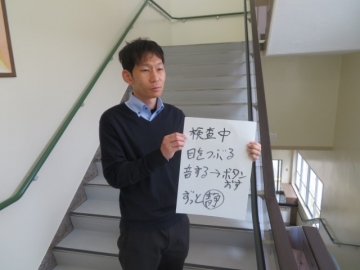 検査中
目をつぶる
音する→ボタン
おす
ずっと静